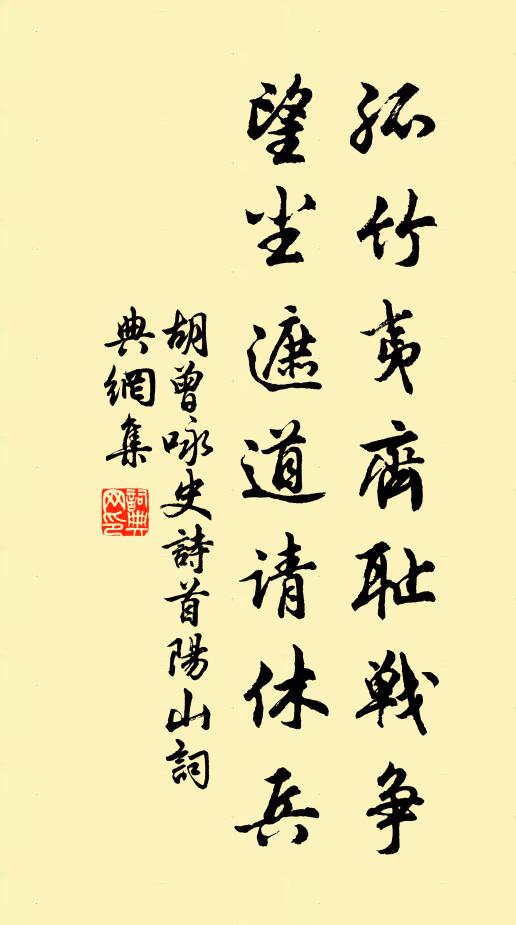 孤竹夷齊耻戰争
望尘遮道请休兵
胡曾咏史詩首陽山詞
典網集
詞典网印